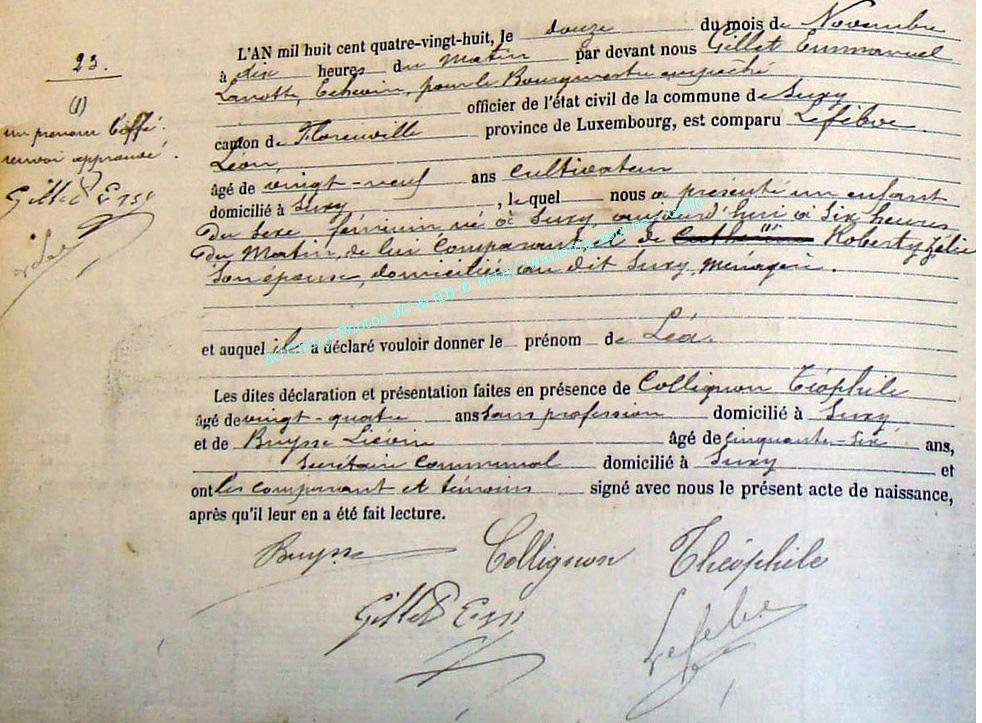 23.
(1)
un prénom biffé.
renvoi approuvé.
L'AN mil huit cent quatre-vingt-huit, le douze du mois de Novembre
à dix heures du Matin par devant nous Gillet Emmanuel
Echevin, pour le Bourgmestre empêché
officier de l'état civil de la commune de Suxy
canton de Florenville province de Luxembourg, est comparu Lefèbve
Léon,
âgé de vingt-neuf ans cultivateur
domicilié à Suxy , le quel nous a présenté un enfant
du sexe féminin né à Suxy aujourd'hui à Six heures
du Matin, de lui Comparant, & de Roberty Zélie
Son épouse, domiciliée au dit Suxy, ménagère.
et auquel il a déclaré vouloir donner le prénom de Léa.
Les dites déclaration et présentation faites en présence de Collignon Téophile
âgé de vingt-quatre ans sans profession domicilié à Suxy
et de Buysse Liévin âgé de cinquante-six ans,
Secrétaire Communal domicilié à Suxy et
ont les comparant et témoins signé avec nous le présent acte de naissance,
après qu'il leur en a été fait lecture.
Buysse Collignon Théophile
Gillet Em
Lefebve